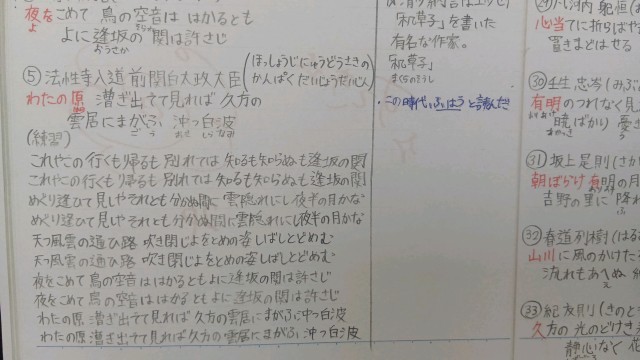 夜をこめて 鳥の空音は はかるとも
よ
よに逢坂の 関は許さじ
おうさか
⑤法性寺入道前関白太政大臣(ほっしょうじにゅうどうさきの
かんぱくだいじょうだいじん)
わたの原 漕ぎ出でて見れば 久方の
雲居にまがふ 沖つ白波
(練習)
これやこの行くも帰るも 別れては 知るも知らぬも 逢坂の関
これやこの行くも帰るも 別れては 知るも知らぬも 逢坂の関
めぐり逢ひて 見しやそれとも 分かぬ間に 雲隠れにし夜半の月かな
めぐり逢ひて 見しやそれとも 分かぬ間に 雲隠れにし夜半の月かな
天つ風雲の通ひ路 吹き閉じよをとめの姿しばしとどめむ
天つ風雲の通ひ路 吹き閉じよをとめの姿しばしとどめむ
夜をこめて 鳥の空音は はかるともよに逢坂の関は許さじ
夜をこめて 鳥の空音は はかるともよに逢坂の関は許さじ
わたの原 漕ぎ出でて見れば 久方の雲居にまがふ 沖つ白波
わたの原 漕ぎ出でて見れば 久方の雲居にまがふ 沖つ白波
「枕草子」を書いた
有名な作家。
「枕草子」
まくらのそうし
心当てに折らばや
置きまどはせる
㉚壬生忠岑(みぶ
有明のつれなく見
暁ばかり 憂き
㉛坂上是則(さか
朝ぼらけ 有明の月
吉野の里に 降れ
㉜春道列樹(はる
山川に風のかけた
流れもあへぬ
㉝紀友則(きのと
久方の 光のどけき
静心なく 花